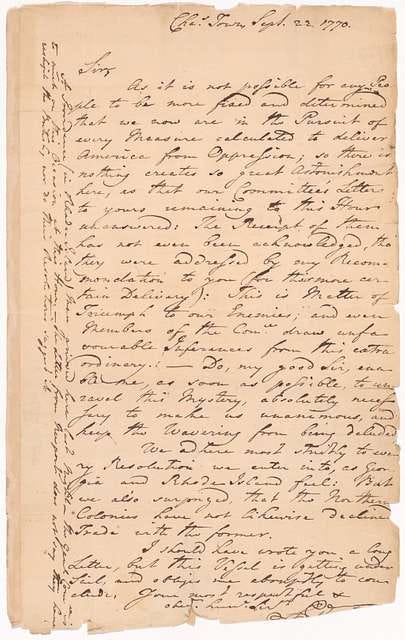 Chas. Town, Sept. 22. 1770.
Sir,
As it is not possible for any Peo-
ple to be more fixed and determined
that we now are in the Pursuit of
every Measure calculated to deliver
America from Oppression; so there is
nothing creates so great Astonishment
here, as that our Committee's Letter
to yours remaining to this Hour
unanswered: The Receipt of them
has not even been acknowledged, tho
they were addressed by my Recom-
mondation to you (for the more cer-
tain Delivery): This is Matter of
Triumph to our Enemies; and even
Members of the Comee. draw unfa-
vourable Inferences from this extra-
ordinary: — Do, my good Sir, ena-
ble me, as soon as possible, to un-
ravel this Mystery, absolutely neces-
sary to make us unanimous, and
keep the Wavering from being deluded.
We adhere most strictly to eve-
ry Resolution we enter into, as Geor-
gia and Rhode Island feel: But
we also surprized, that the Northern
Colonies have not likewise declined
Trade with the former.
I should have wrote you a long
Letter, but this Vessel is getting under
Sail, and obliges me abruptly to con-
clude. Your most respectful &
obedt. humr. Servt.
A in Rhode Island Man arrived here last Night